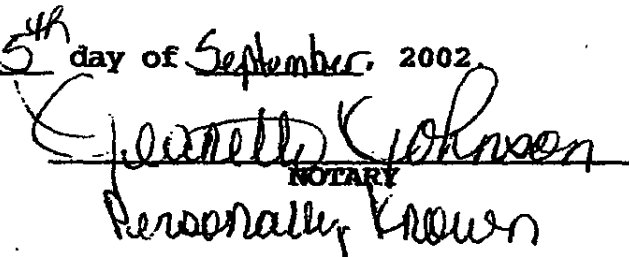 5th day of September, 2002.
Jeanette Johnson
NOTARY
Personally Known